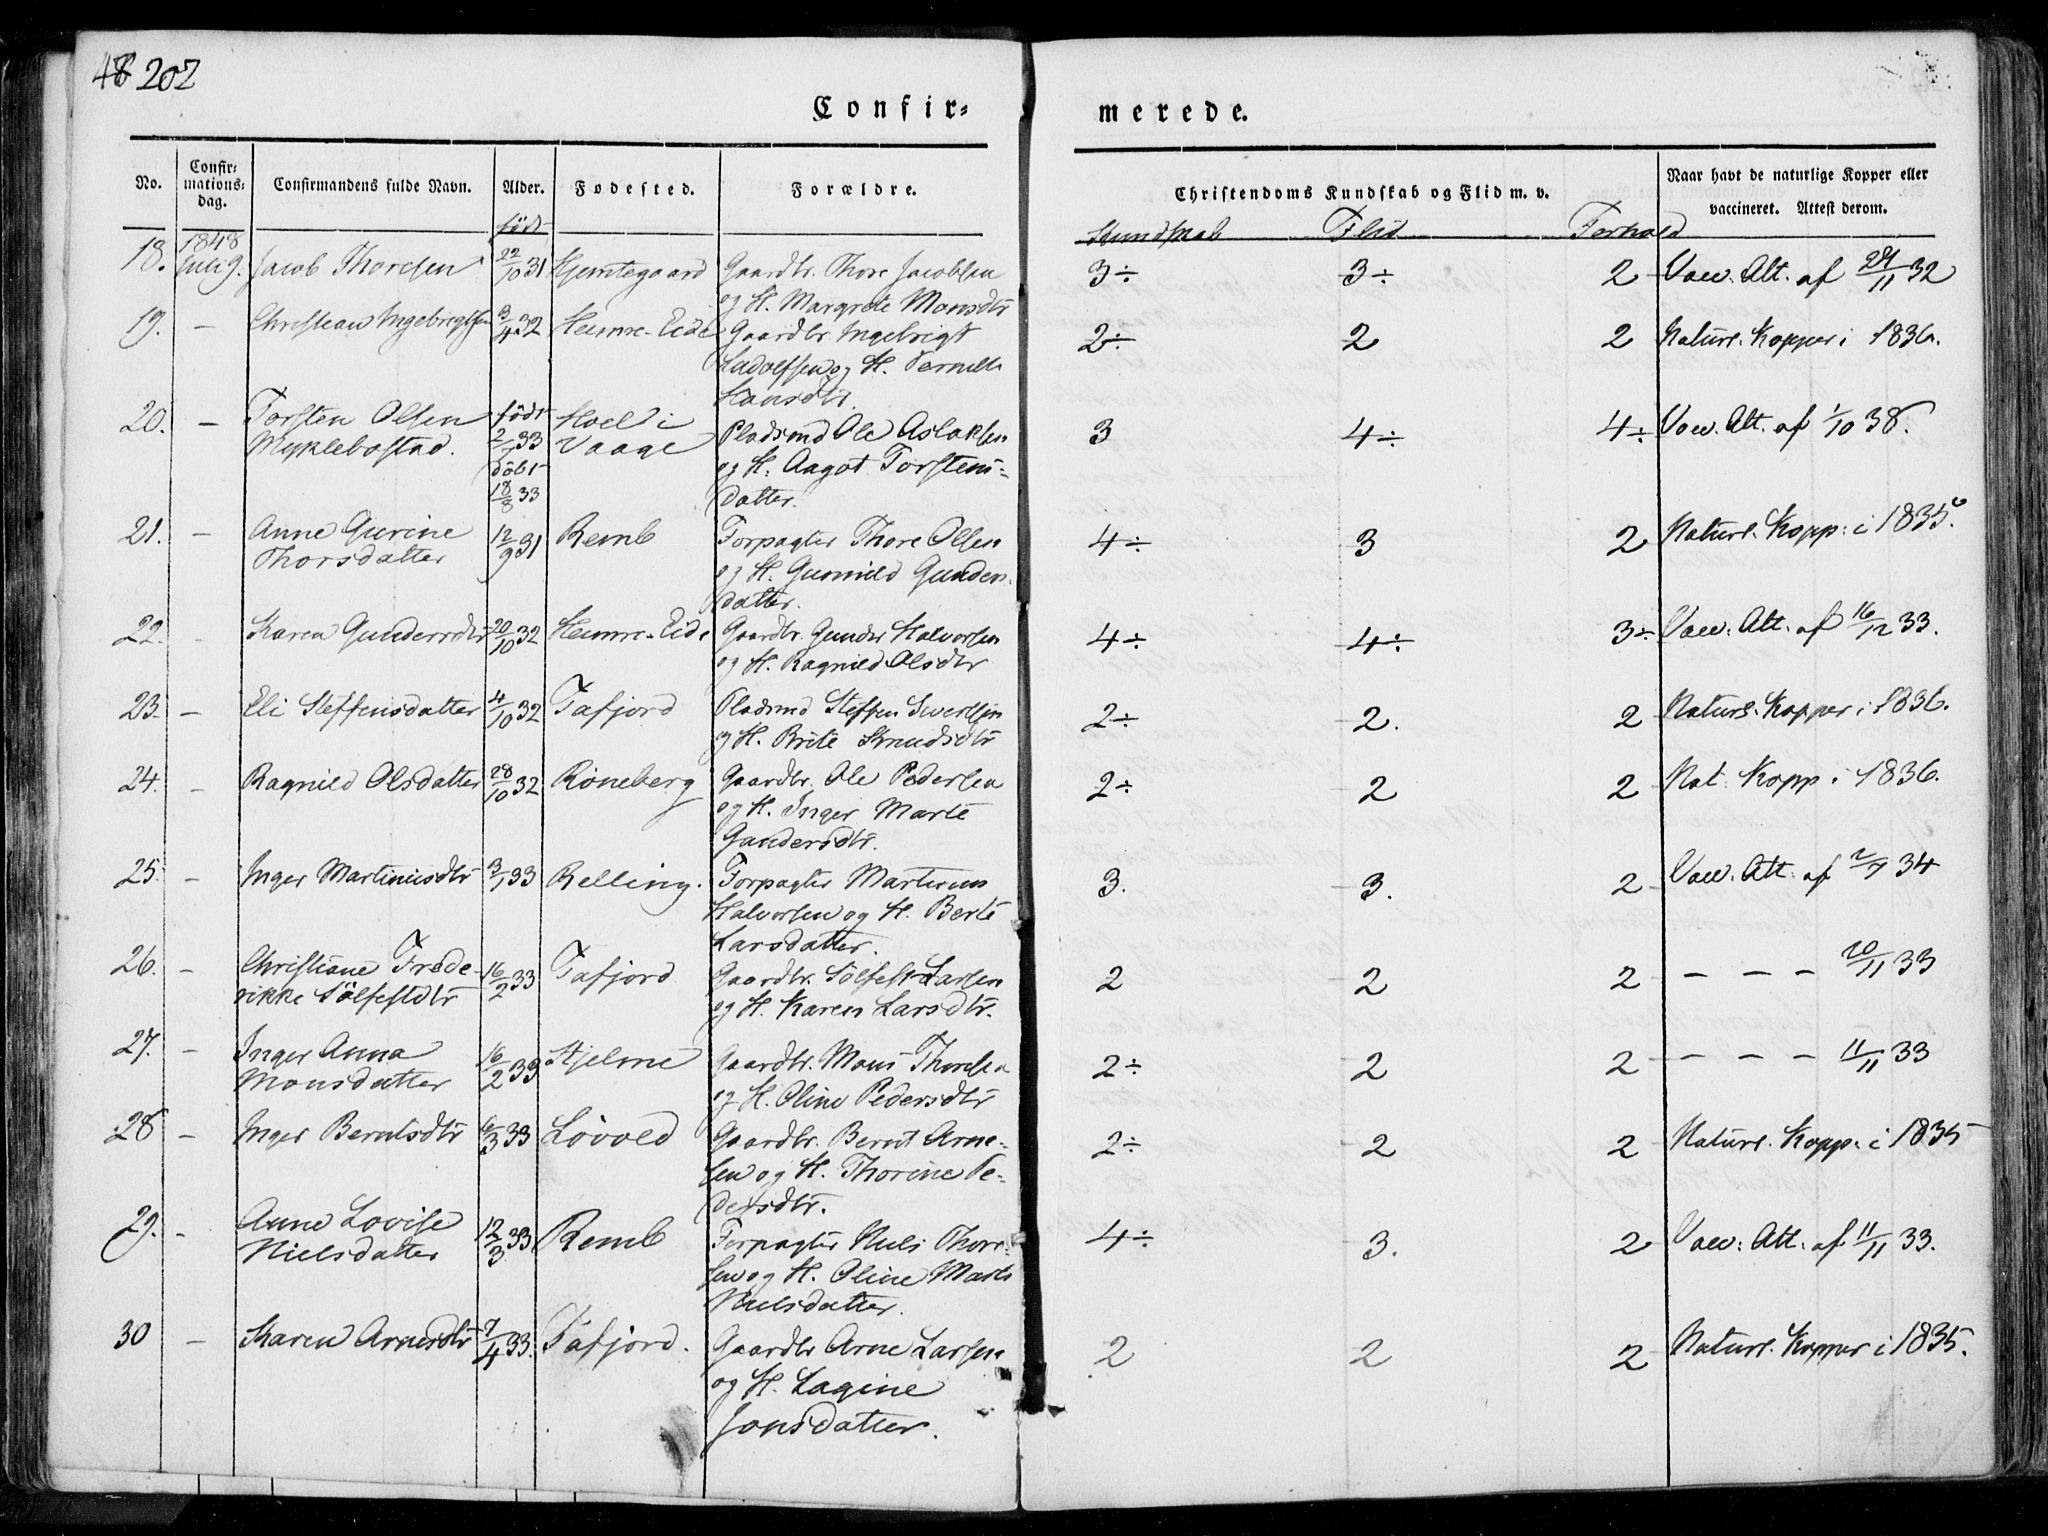 48 202
Confir=
merede.
No.
Confir=
mations=
dag.
Confirmandens fulde Navn.
Alder.
Fødested.
Forældre.
Christendoms Kundskab og Flid m. v.
Naar havt de naturlige Kopper eller
vaccineret. Attest derom.
født
Kundskab Flid Forhold
18. 1848 Juli 9. Jacob Thoresen 22/10 31 Gaardbr. Thore Jacobsen 3÷ 3÷ 2 Vacc. Att. af 24/11 32
og H. Margrete Monsdtr
19. - Christian Ingebrigtsen 3/4 32 Hemre-Eide Gaardbr. Ingebrigt 2÷ 2 2 Naturl. Kopper i 1836.
Ladolfsen og H. Pernille
Hansdtr.
20. - Torsten Olsen født Hoel i
Myklebostad. 2/7 33 Vaage Pladsmd Ole Aslaksen 3 4÷ 4÷ Vacc. Att. af 1/10 38.
døbt og H. Aagot Torstens-
18/8 33 datter.
21. - Anne Gurine 12/9 31 Remb Forpagter Thore Olsen 4÷ 3 2 Naturl. Kopp: i 1835.
Thorsdatter og H. Gunnild Gunders-
datter.
22. - Karen Gundersdtr 20/10 32 Hemre-Eide Gaardbr. Gunder Halvorsen 4÷ 4÷ 3÷ Vacc. Att. af 16/12 33.
og H. Ragnild Olsdtr
23. - Eli Steffensdatter 4/10 32 Tafjord Pladsmd Steffen Sivertsen 2÷ 2. 2 Naturl. Kopper i 1836.
og H. Brite Knudsdtr
24. - Ragnild Olsdatter 28/10 32 Røneberg Gaardbr. Ole Pedersen 2÷ 2 2 Nat. Kopp i 1836.
og H. Inger Marte
Gundersdtr.
25. - Inger Martinusdtr 3/1 33 Relling. Forpagter Martinus 3. 3. 2 Vacc. Att. af 2/7 34
Halvorsen og H. Berte
Larsdatter.
26. - Christiane Frede- 16/2 33 Tafjord Gaardbr. Sølfest Larsen 2 2 2 - - - 20/11 33
rikke Sølfestdtr og H. Karen Larsdtr.
27. - Inger Anna 16/2 33 Hjelme Gaardbr. Mons Thoresen 2÷ 2 2 - - - 11/11 33
Monsdatter og H. Oline Pedersdtr
28 - Inger Berntsdtr 6/3 33 Løvold Gaardbr. Bernt Arne- 2÷ 2 2 Naturl. Kopp: i 1835
sen og H. Thorine Pe-
dersdtr.
29. - Anne Lovise 12/3 33 Remb Forpagter Niels Thore- 4÷ 3. 2 Vacc. Att. af 11/11 33.
Nielsdatter sen og H. Oline Marte
Nielsdatter.
30 - Karen Arnesdtr 7/4 33. Tafjord. Gaardbr Arne Larsen 2 2 2 Naturl. Kopper i 1835.
og H. Lagine
Jonsdatter.